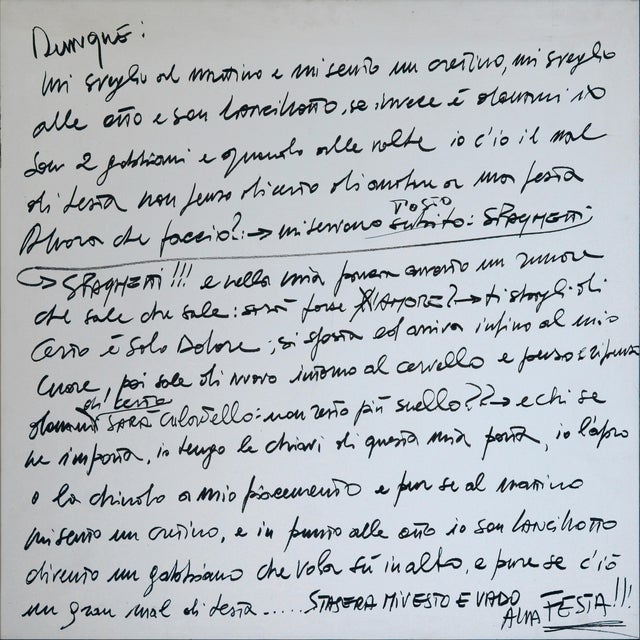 Dunque:
mi sveglio al mattino e mi sento un cretino, mi sveglio
alle otto e son Lancillotto, se invece è davanti io
son 2 gabbiani e quando alle volte io c'iò il mal
di testa non penso di certo di andare a una festa
Allora che faccio?:→ mi servono TOSTO subito: SPAGHETTI
→ SPAGHETTI!!! e nella mia avanto un rumore
che sale che sale: sarà forse AMORE?→ ti sbagli di
certo è solo Dolore; si sposta ed arriva infino al mio
Cuore, poi sale di nuovo intorno al cervello e penso e ripenso
di certo SARÀ Coltello: non resto più snello??→ e chi se
ne importa, io tengo le chiavi di questa mia porta, io l'apro
o la chiudo a mio piacimento e pur se al mattino
mi sento un cretino, e in punto alle otto io son Lancillotto
divento un gabbiano che vola sù in alto, e pure se c'iò
un gran mal di testa ..... STASERA MI VESTO E VADO
ALLA FESTA!!!